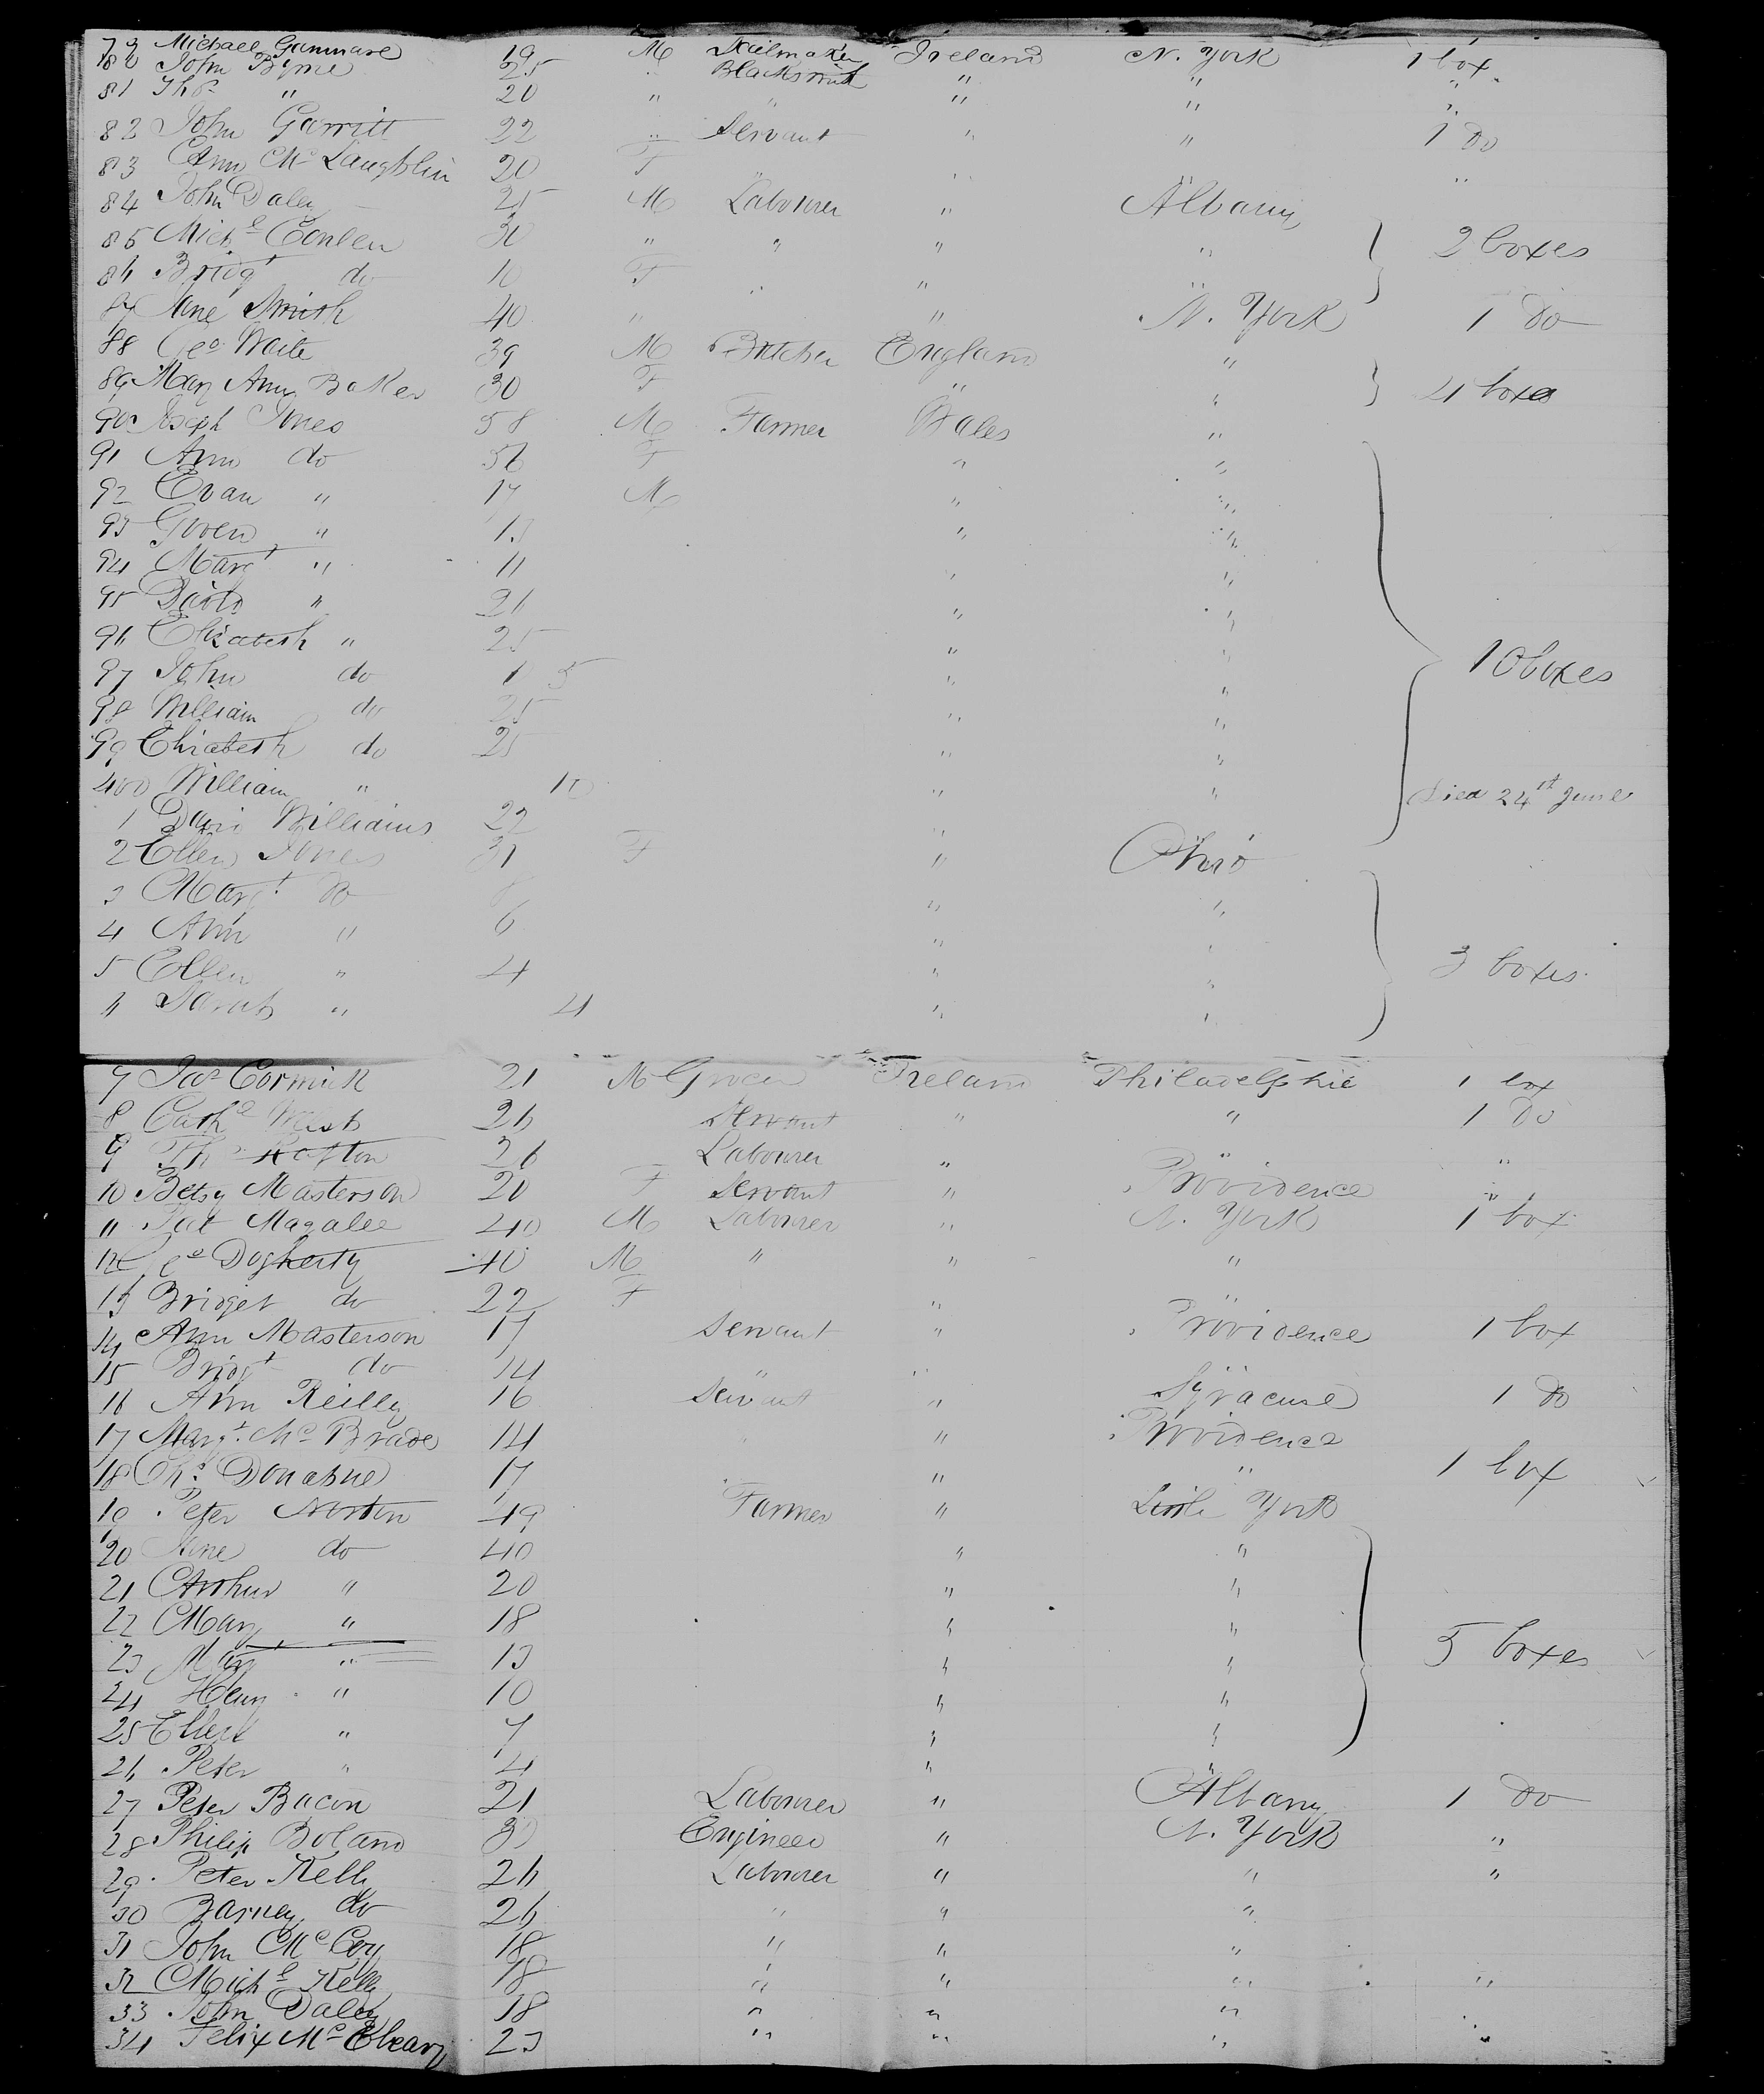 79 Michael Gunmare 19 M Nailmaker Ireland N. York 1 box
80 John Byrne 25 " Blacksmith " " "
81 Thos " 20 " " " " "
82 John Garritt 22 " Servant " " 1 Do
83 Ann Mc Laughlin 20 F " " " "
84 John Daley 25 M Labourer " Albany
85 Michl Conlen 30 " " " " 2 boxes
86 Bridgt do 10 F " " "
87 Jane Smith 40 " " N. York 1 Do
88 Geo Waite 39 M Butcher England "
89 Mary Ann Baker 30 F " " 4 boxes
90 Joseph Jones 58 M Farmer Wales "
91 Ann do 56 F " "
92 Evan " 17 M " "
93 Gwen " 15 " "
94 Margt " 11 " "
95 David " 26 " "
96 Elizabeth " 25 " "
97 John do 1 5 " " 10 boxes
98 William do 25 " "
99 Elizabeth do 25 " "
400 William " 10 " " Died 24th June
1 David Williams 22 " "
2 Ellen Jones 31 F " Ohio
3 Margt Do 8 " "
4 Ann " 6 " "
5 Ellen " 4 " " 3 boxes
6 Sarah " 4 " "
7 Jas Cormick 21 M Grocer Ireland Philadelphia 1 box
8 Cathe Walsh 26 Servant " " 1 Do
9 Thos Rafton 26 Labourer " " "
10 Betsy Masterson 20 F Servant " Providence "
11 Pat Magalee 40 M Labourer " N. York 1 box
12 Geo Dogherty 40 M " " "
13 Bridget do 22 F " "
14 Ann Masterson 17 Servant " Providence 1 box
15 Bridgt do 14 " " "
16 Ann Reilly 16 Servant " Syracuse 1 Do
17 Margt Mc Brade 14 " " Providence
18 Chs Donahue 17 " " 1 box
19 Peter Norton 49 Farmer " Little York
20 Jane do 40 " "
21 Arthur " 20 " "
22 Mary " 18 " "
23 Margt " 13 " " 5 boxes
24 Henry " 10 " "
25 Ellen " 7 " "
26 Peter " 4 " "
27 Peter Bacon 21 Labourer " Albany 1 Do
28 Philip Boland 30 Engineer " N. York "
29 Peter Kelly 26 Labourer " " "
30 Barney do 26 " " "
31 John Mc Coy 18 " " "
32 Michl Kelly 18 " " " "
33 John Daley 18 " " " "
34 Felix Mc Cleary 23 " " " "